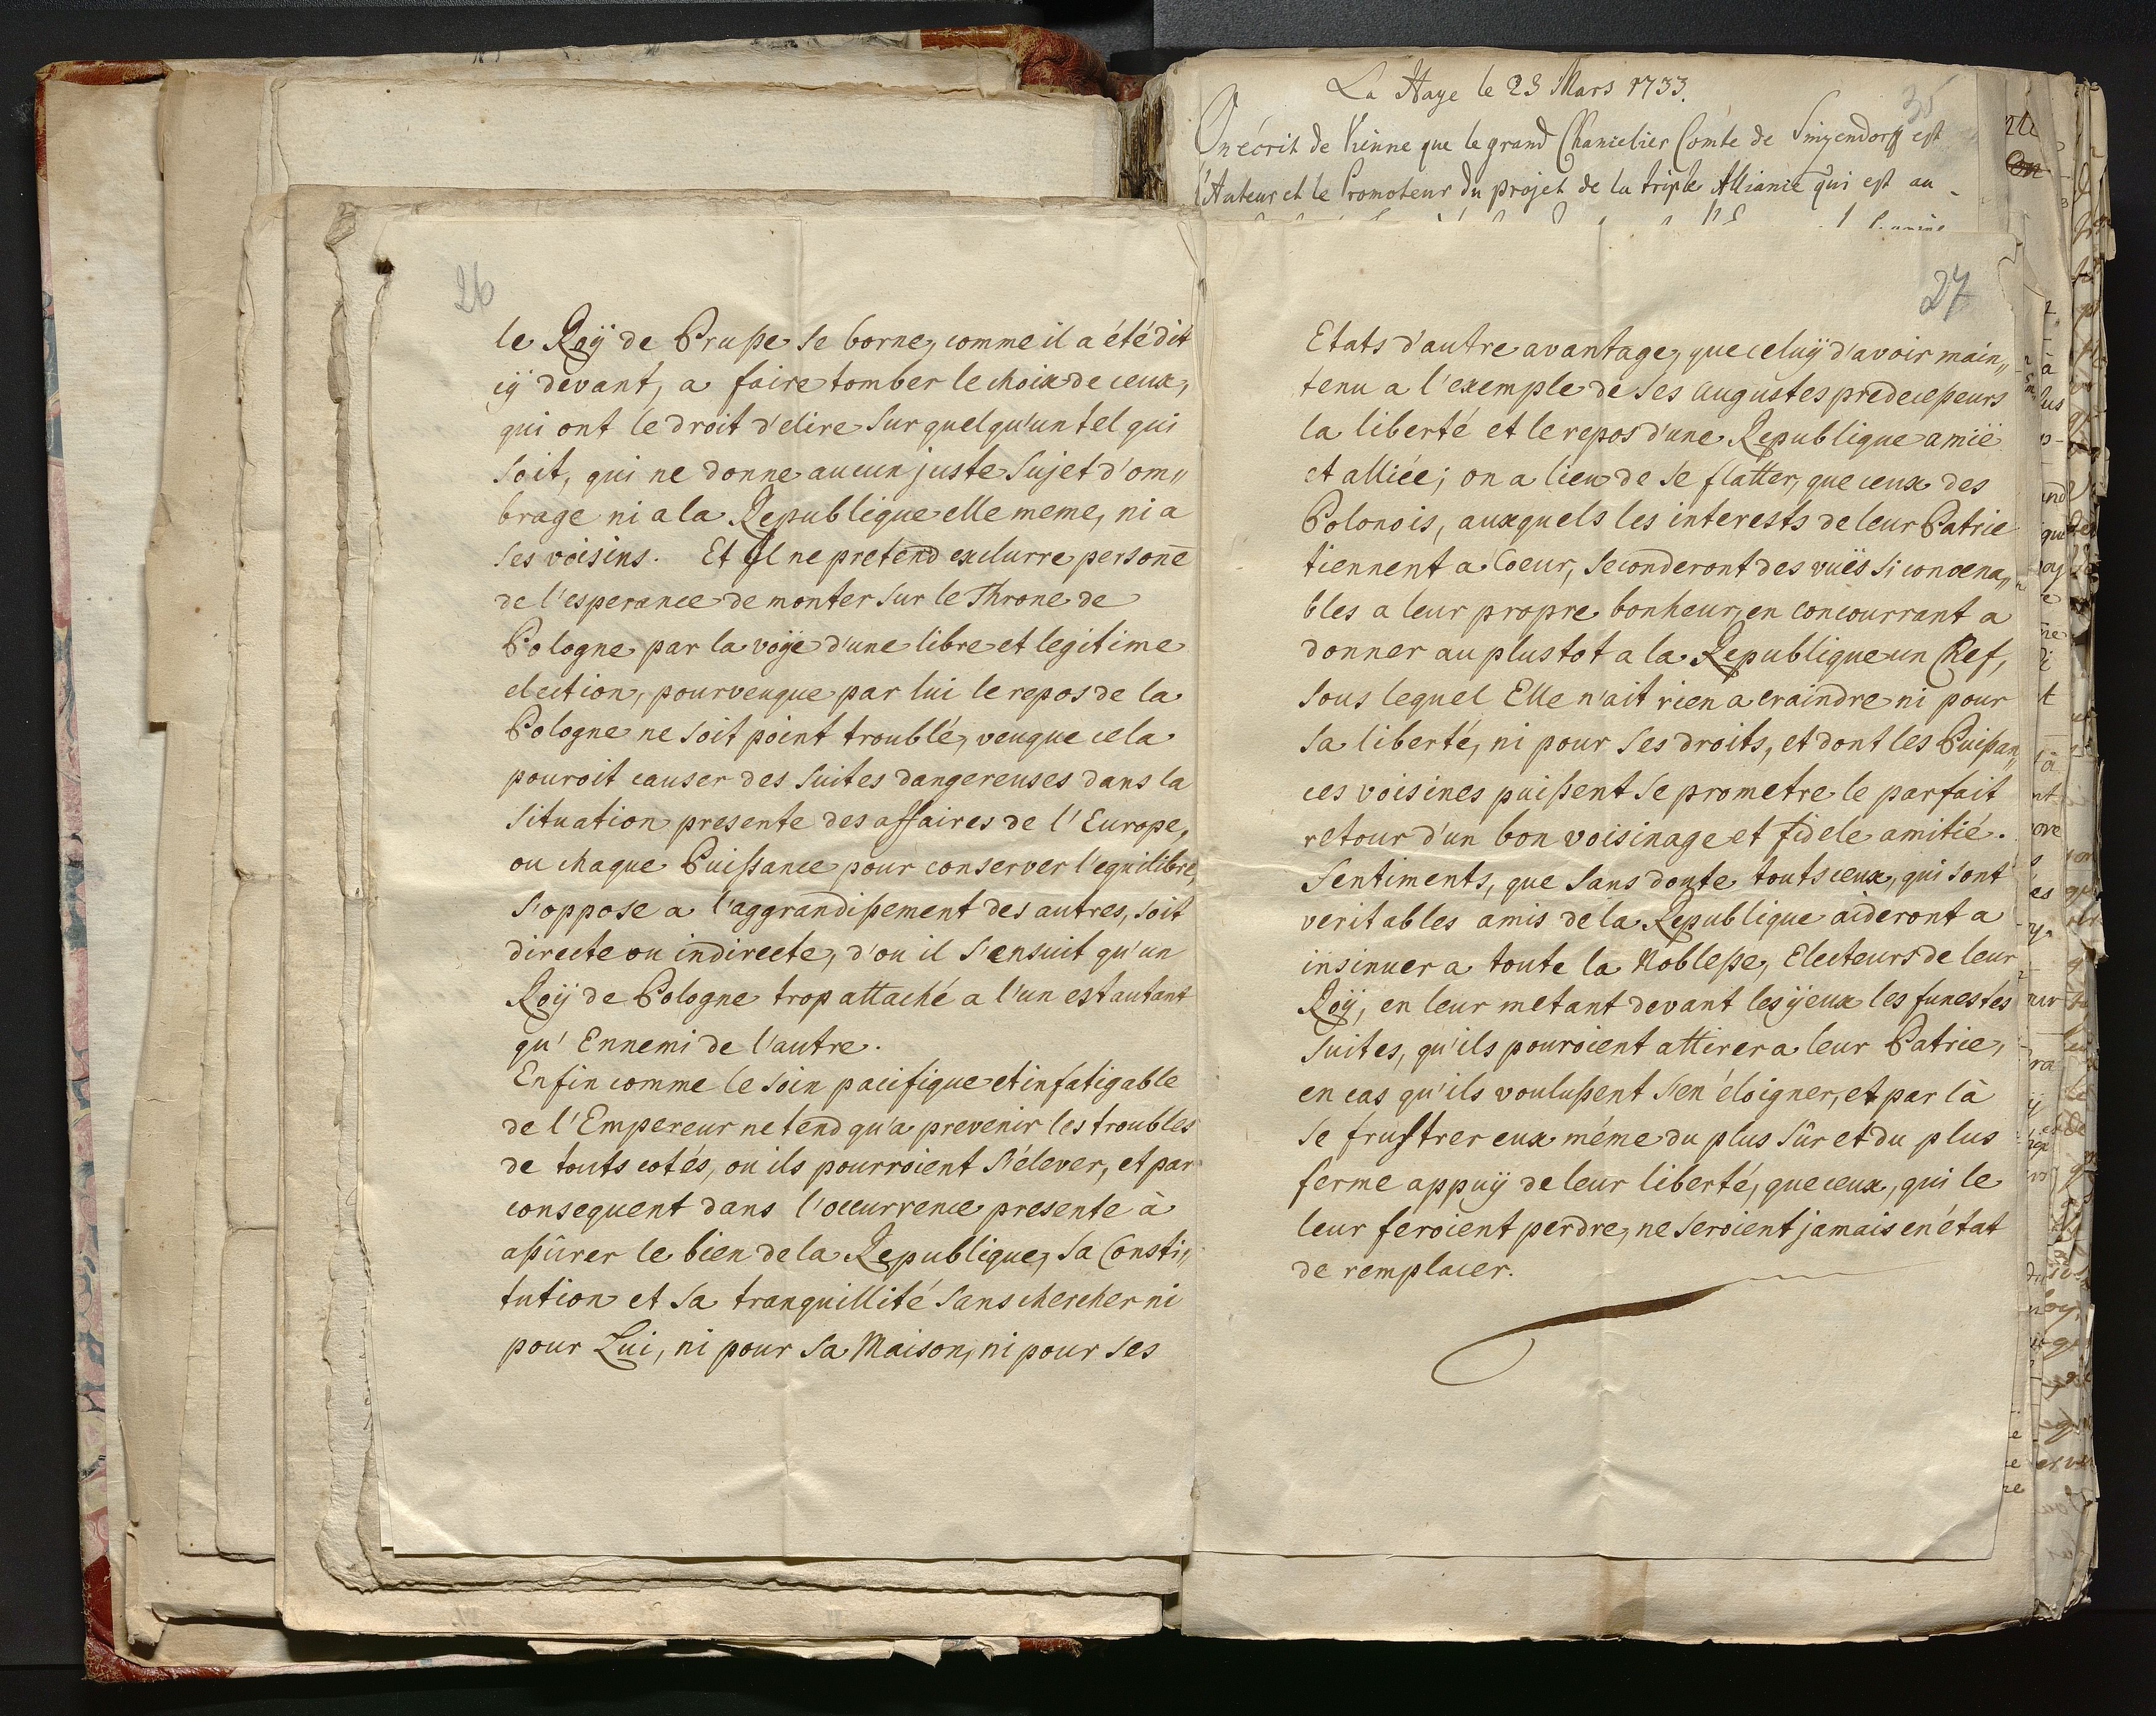 26
le Roÿ de Prusse se borne, comme il a été dit
cÿ devant, a faire tomber le choix de ceux,
qui ont le droit d'elire sur quelqu'un tel qui
soit, qui ne donne aucun juste sujet d'om„
brage ni a la Republique elle meme, ni a
ses voisins. Et Il ne pretend exclurre persone
de l'esperance de monter sur le Throne de
Pologne par la voÿe d'une libre et legitime
election, pourveuque par lui le repos de la
Pologne ne soit point troublé, veuque cela
pouroit causer des suites dangereuses dans la
situation presente des affaires de l'Europe,
ou chaque Puissance pour conserver l'equilibre,
s'oppose a l'aggrandissement des autres, soit
directe ou indirecte, d'ou il s'ensuit qu'un
Roÿ de Pologne trop attaché a l'un est autant
qu'Ennemi de l'autre.
Enfin comme le soin pacifique et infatigable
de l'Empereur ne tend qu'a prevenir les troubles
de touts cotés, ou ils pourroient s'élever, et par
consequent dans l'occurrence presente à
assûrer le bien de la Republique, sa Consti„
tution et sa tranquillité sans chercher ni
pour Lui, ni pour sa Maison, ni pour ses
La Haye le 23 Mars 1733.
35
On écrit de Vienne que le grand Chancelier Comte de Sinzendorff est
l'Auteur et le Promoteur du projet de la triple Alliance qui est au-
27
Etats d'autre avantage, que celuÿ d'avoir main„
tenu a l'exemple de ses augustes predecesseurs
la liberté et le repos d'une Republique amie
et alliée; on a lieu de se flatter, que ceux des
Polonois, auxquels les interests de leur Patrie
tiennent a Coeur, seconderont des vuës si convena„
bles a leur propre bonheur, en concourrant a
donner au plustot a la Republique un Chef,
sous lequel Elle n'ait rien a craindre ni pour
sa liberté, ni pour ses droits, et dont les Puissan„
ces voisines puissent se prometre le parfait
retour d'un bon voisinage et fidele amitié.
Sentiments, que sans doute touts ceux, qui sont
veritables amis de la Republique aideront a
insinuer a toute la Noblesse, Electeurs de leur
Roÿ, en leur metant devant les ÿeux les funestes
suites, qu'ils pouroient attirer a leur Patrie,
en cas qu'ils voulussent s'en éloigner, et par là
se frustrer eux méme du plus sûr et du plus
ferme appuÿ de leur liberté, que ceux, qui le
leur feroient perdre, ne seroient jamais en état
de remplacer.